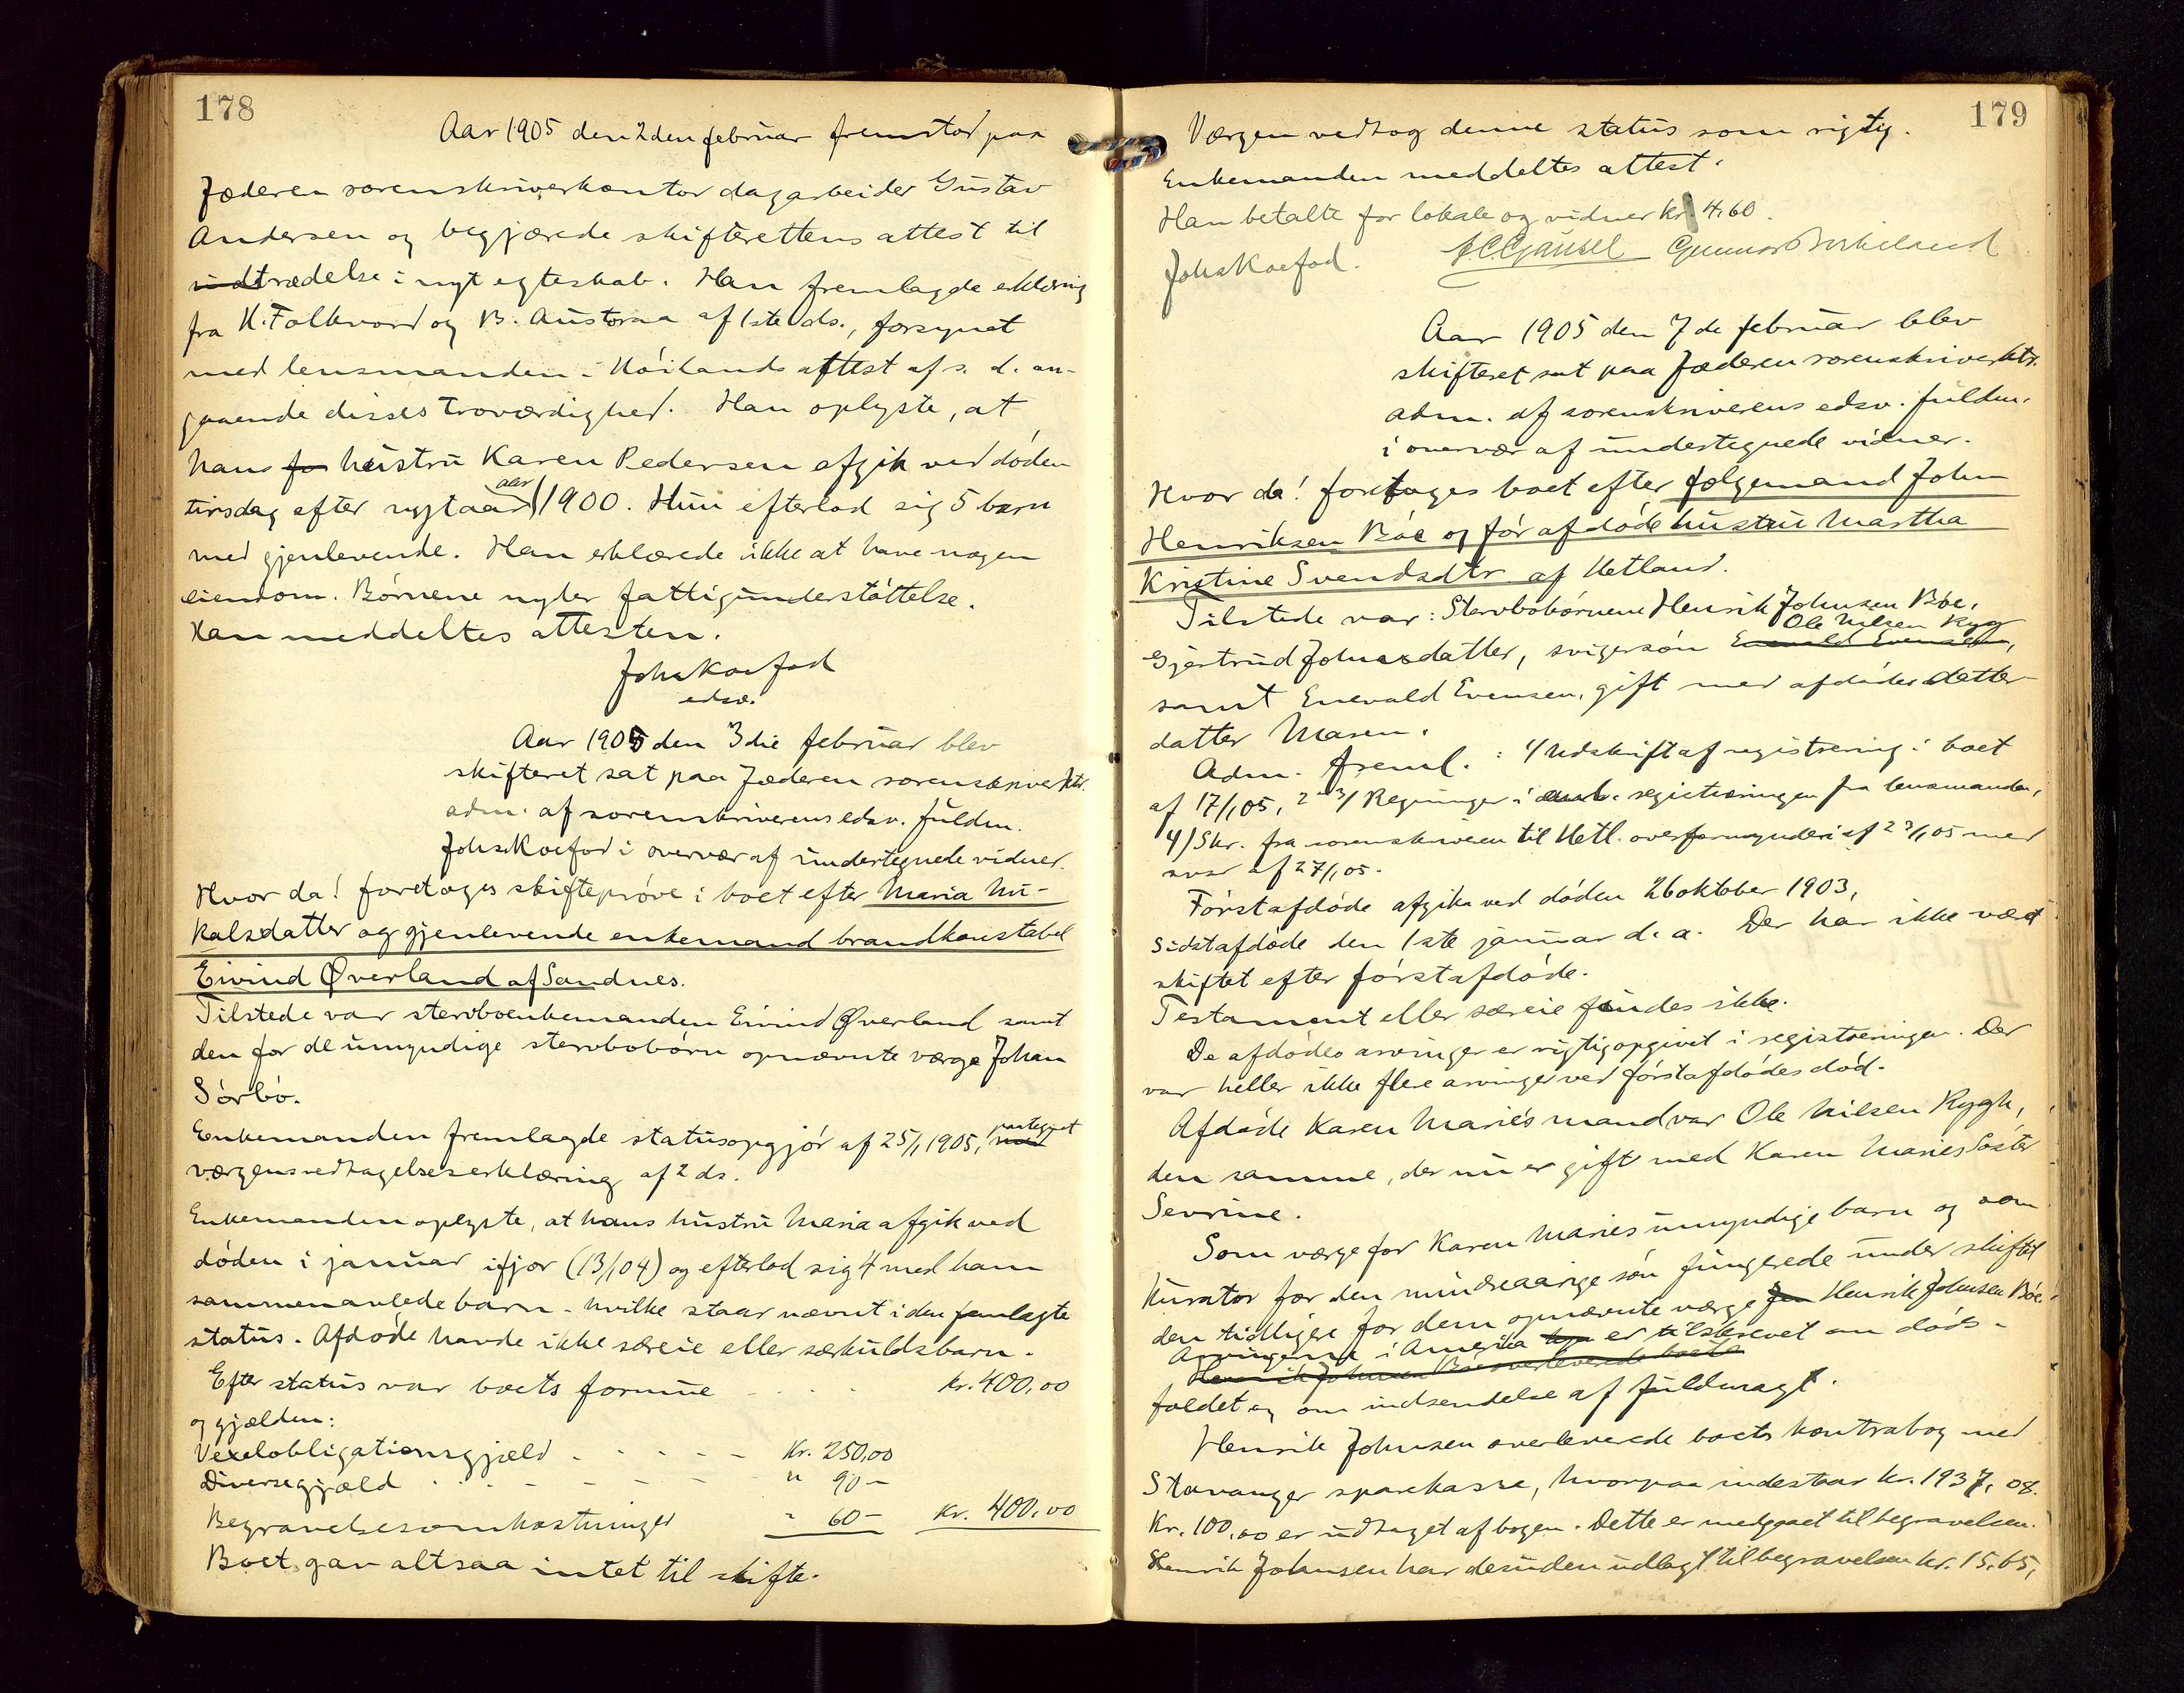 178
Aar 1905 den 2den februar fremstod paa
Jæderen sorenskriverkontor dagarbeider Gustav
Andersen og begjærede skifterettens attest til
indtrædelse i nyt egteskab. Han fremlagde erklæring
fra K. Folkvord og B. Austraa af 1ste ds., forsynet
med lensmanden i Høilands attest af s. d. an-
gaaende disses troværdighed. Han oplyste, at
hans for hustru Karen Pedersen afgik ved døden
tirsdag efter nytaar 1900. Hun efterlod sig 5 børn
med gjenlevende. Han erklærede ikke at have nogen
eiendom. Børnene nyder fattigunderstøttelse.
Han meddeltes attesten.
Johs Koefod
edsv.
Aar 1905 den 3die februar blev
skifteret sat paa Jæderen sorenskriverktr.
adm. af sorenskriverens edsv. fuldm.
Johs Koefod i overvær af undertegnede vidner.
Hvor da! foretoges skifteprøve i boet efter Maria Mi-
kalsdatter og gjenlevende enkemand brandkonstabel
Eivind Øverland af Sandnes.
Tilstede var stervboenkemanden Eivind Øverland samt
den for de umyndige stervbobørn opnævnte værge Johan
Sørbø.
Enkemanden fremlagde statusopgjør af 25/1 1905, med paategnet
værgens vedtagelseserklæring af 2 ds.
Enkemanden oplyste, at hans hustru Maria afgik ved
døden i januar ifjor (13/1 04) og efterlod sig 4 med ham
sammenavlede barn - hvilke staar nævnt i den fremlagte
status. Afdøde havde ikke særeie eller særkuldsbarn.
Efter status var boets formue kr. 400,00
og gjælden:
Vexelobligationsgjæld Kr. 250,00
Diversegjæld " 90 -
Begravelsesomkostninger " 60 - Kr. 400,00
Boet gav altsaa intet til skifte.
179
Værgen vedtog denne status som rigtig.
Enkemanden meddeltes attest.
Han betalte for lokale og vidner kr. 4.60.
Johs Koefod. Gunnar Birkeland
Aar 1905 den 7de februar blev
skifteret sat paa Jæderen sorenskriverktr.
adm. af sorenskriverens edsv. fuldm.
i overvær af undertegnede vidner.
Hvor da! foretoges boet efter følgemand John
Henriksen Bøe og før afdøde hustru Martha
Kristine Svendsdtr. af Hetland.
Tilstede var: Stervbobørnene Henrik Johnsen Bøe,
Gjertrud Johnsdatter, svigersøn Enevald Evensen, Ole Nilsen Rygg
samt Enevald Evensen, gift med afdødes datter-
datter Maren.
Adm. freml.: 1/ Udskrift af registrering i boet
af 17/1 05, 2-3/ Regninger i anl. registreringen fra lensmanden,
4/ Skr. fra sorenskriveren til Hetl. overformynderi af 23/1 05 med
svar af 27/1 05.
Førstafdøde afgik ved døden 26 oktober 1903,
sidstafdøde den 1ste januar d. a. Der har ikke været
skiftet efter førstafdøde.
Testament eller særeie findes ikke.
De afdødes arvinger er rigtig opgivet i registreringen. Der
var heller ikke flere arvinger ved førstafdødes død.
Afdøde Karen Maries mand var Ole Nilsen Rygh,
den samme, der nu er gift med Karen Maries søster
Sevrine.
Som værge for Karen Maries umyndige barn og som
kurator for den mindreaarige søn fungerede under skiftet
den tidligere for dem opnævnte værge Henrik Johnsen Bøe.
Arvingerne i Amerika er tilskrevet om døds-
Henrik Johnsen Bøe overleverede boets
faldet og om indsendelse af fuldmagt.
Henrik Johnsen overleverede boets kontrabog med
Stavanger sparekasse, hvorpaa indestaar kr. 1937,08.
Kr. 100,00 er udtaget af bogen. Dette er medgaaet til begravelsen.
Henrik Johnsen har desuden udlagt til begravelsen kr. 15,65,